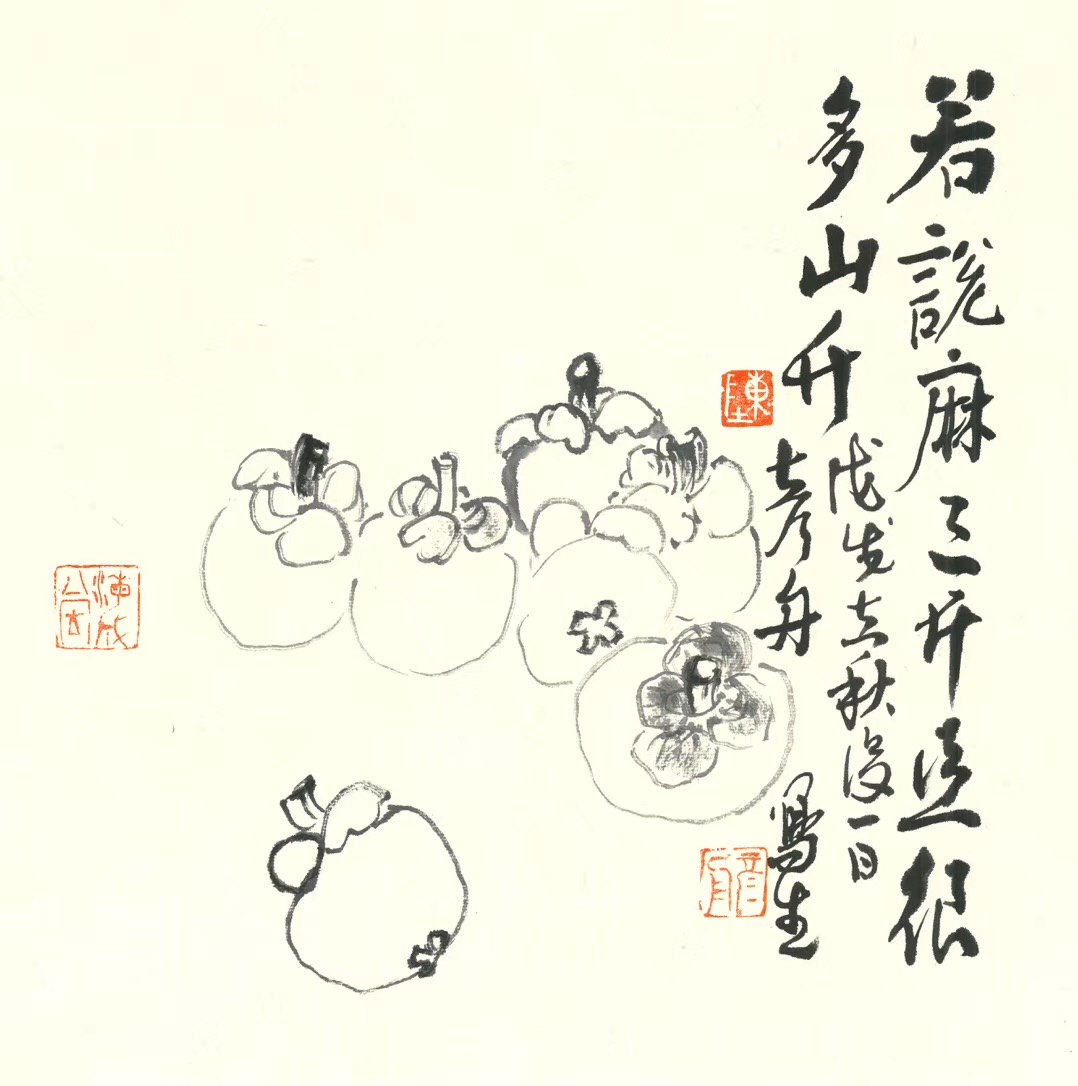 若說麻三斤 很
多山竹
戊戌立秋後一日
彥舟 寫生